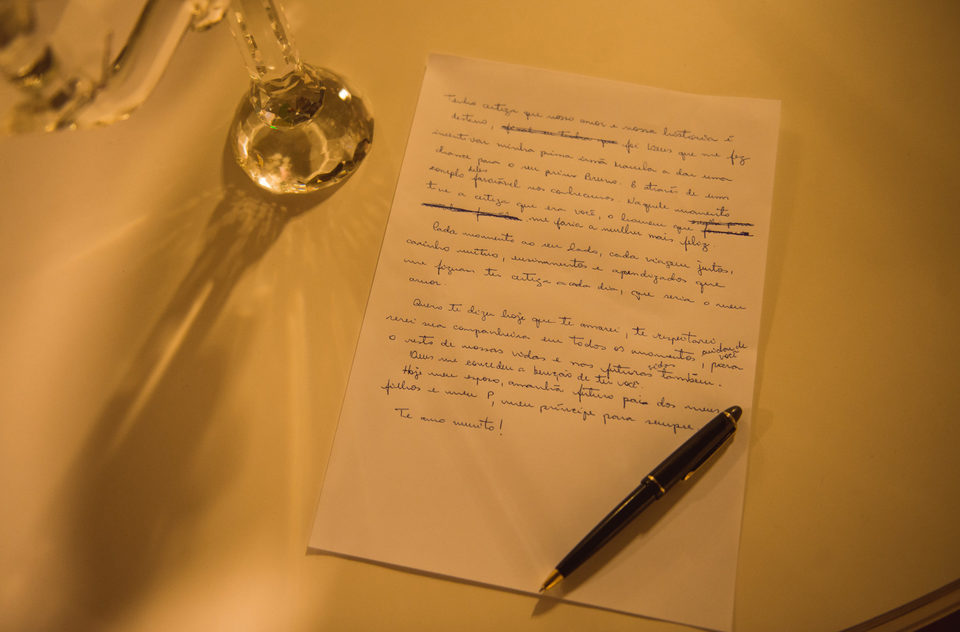 Tenho certeza que nosso amor e nossa história é
destino, foi Deus que me fez
incentivar minha prima irmã a dar uma
chance para o seu primo Bruno. E através de um
exemplo deles favorável nos conhecemos. Naquele momento
tive a certeza que era você, o homem que
me faria a mulher mais feliz.
Cada momento ao seu lado, cada viagem juntos,
carinho mútuo, ensinamentos e aprendizados que
me fizeram ter certeza a cada dia, que seria o meu
amor.
Quero te dizer hoje que te amarei, te respeitarei,
serei sua companheira em todos os momentos, cuidar de você, para
o resto de nossas vidas e nas futuras vidas também.
Deus me concedeu a benção de ter você.
Hoje meu esposo, amanhã futuro pai dos meus
filhos e meu P, meu príncipe para sempre
Te amo muito!